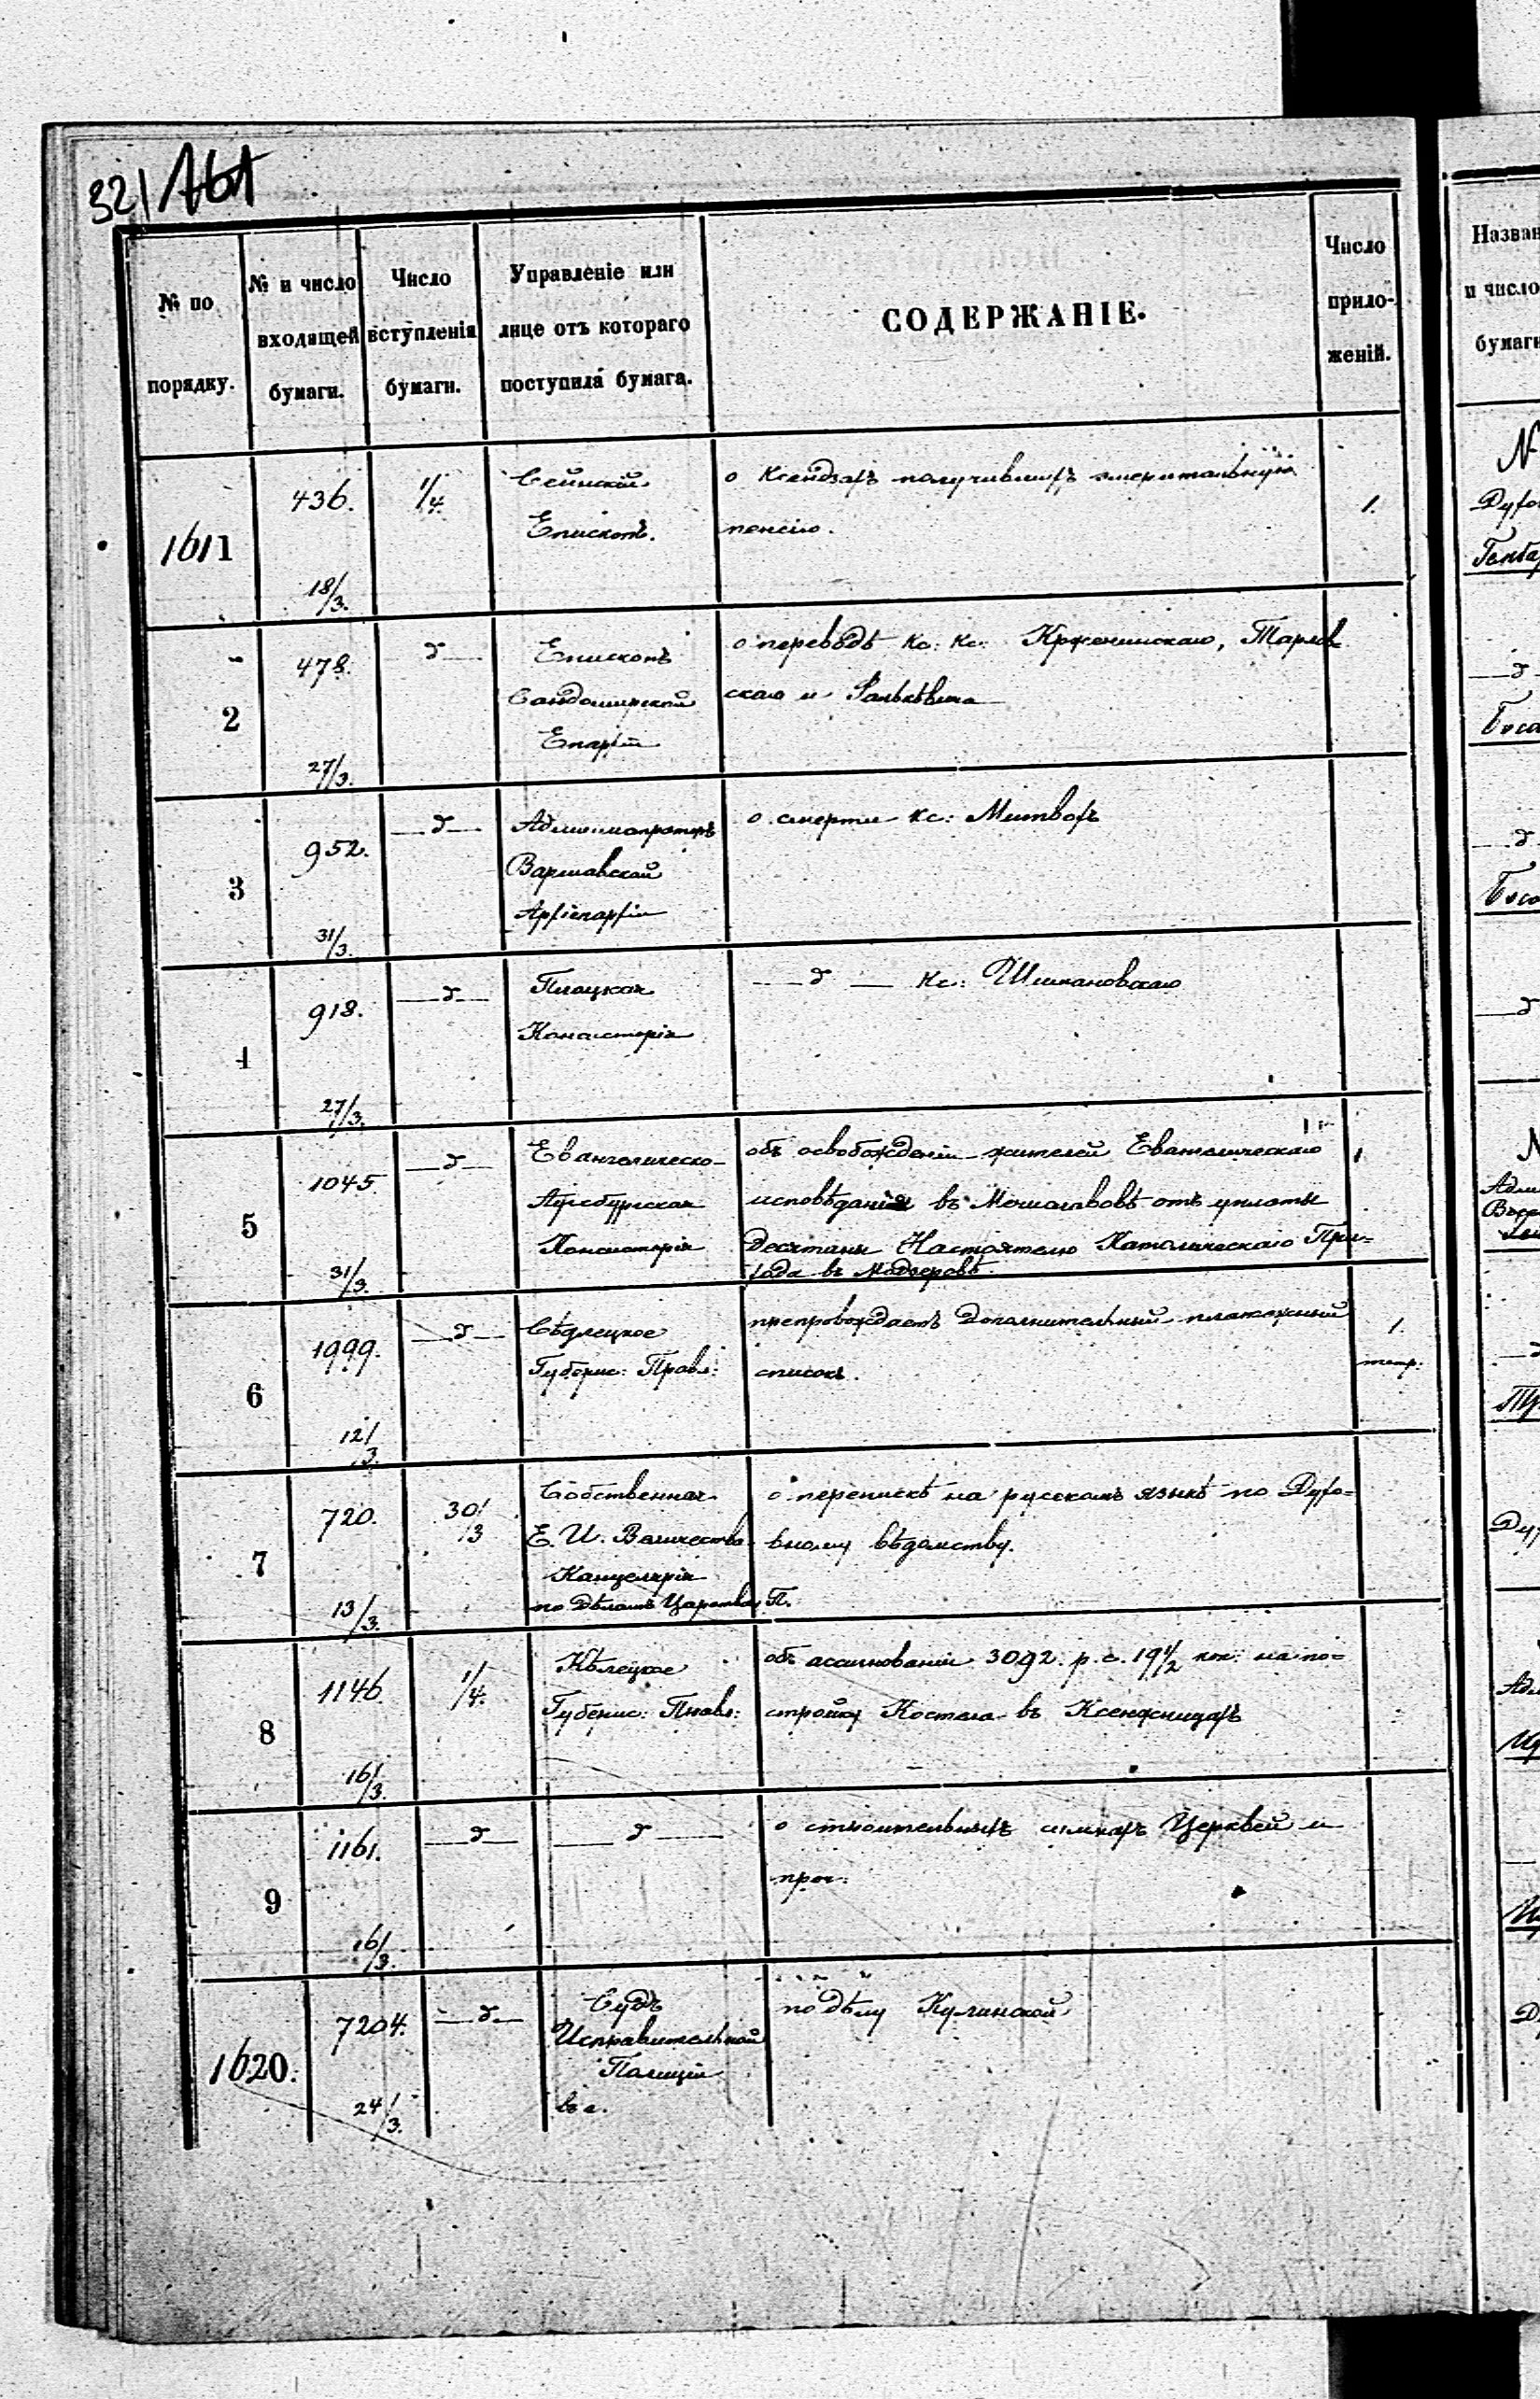 321 161
№ по порядку.
№ и число входящей бумаги.
Число вступленія бумаги.
Управленіе или лице отъ котораго поступила бумага.
СОДЕРЖАНІЕ.
Число прило-
женій.
1611
436.
18/3.
1/4.
Сейнскій
Епископъ.
о Ксендзахъ получившихъ эмеритальную
пенсію.
1.
2
478.
27/3.
д
Епископъ
Сандомирской
Епархіи
о переводѣ Кс: Кс:
Тарлов-
скаго и
3
952.
31/3.
д
Администраторъ
Варшавской
Архіепархіи
о смерти Кс: Митвохъ
4
918.
27/3.
д
Плоцкая
Консисторія
д Кс: Шимановскаго
5
1045.
31/3.
д
Евангелическо-
Аугсбургская
Консисторія
объ освобожденіи жителей Еванелическаго
исповѣданія въ отъ уплаты
десятины Настоятелю Католическаго При-
хода въ
1
6
1999.
12/3.
д
Сѣдлецкое
Губерн: Правл:
препровождаетъ дополнительный платежный
списокъ.
1.
тетр.
7
720.
13/3.
30/3
Собственная
Е. И. Величества
Канцелярія
по Дѣламъ Царства П.
о перепискѣ на русскомъ языкѣ по Духо-
вному вѣдомству.
8
1146.
16/3.
1/4.
Кѣлецкое
Губерн: Правл:
объ ассигнованіи 3092. р. с. 19 1/2 коп: на по-
стройку Костела въ Ксенжницахъ
9
1161.
16/3.
д
д
о строительныхъ Церквей и
проч:
1620.
7204.
24/3.
д
Судъ
Исправительной
Полиціи
по дѣлу Кулинской